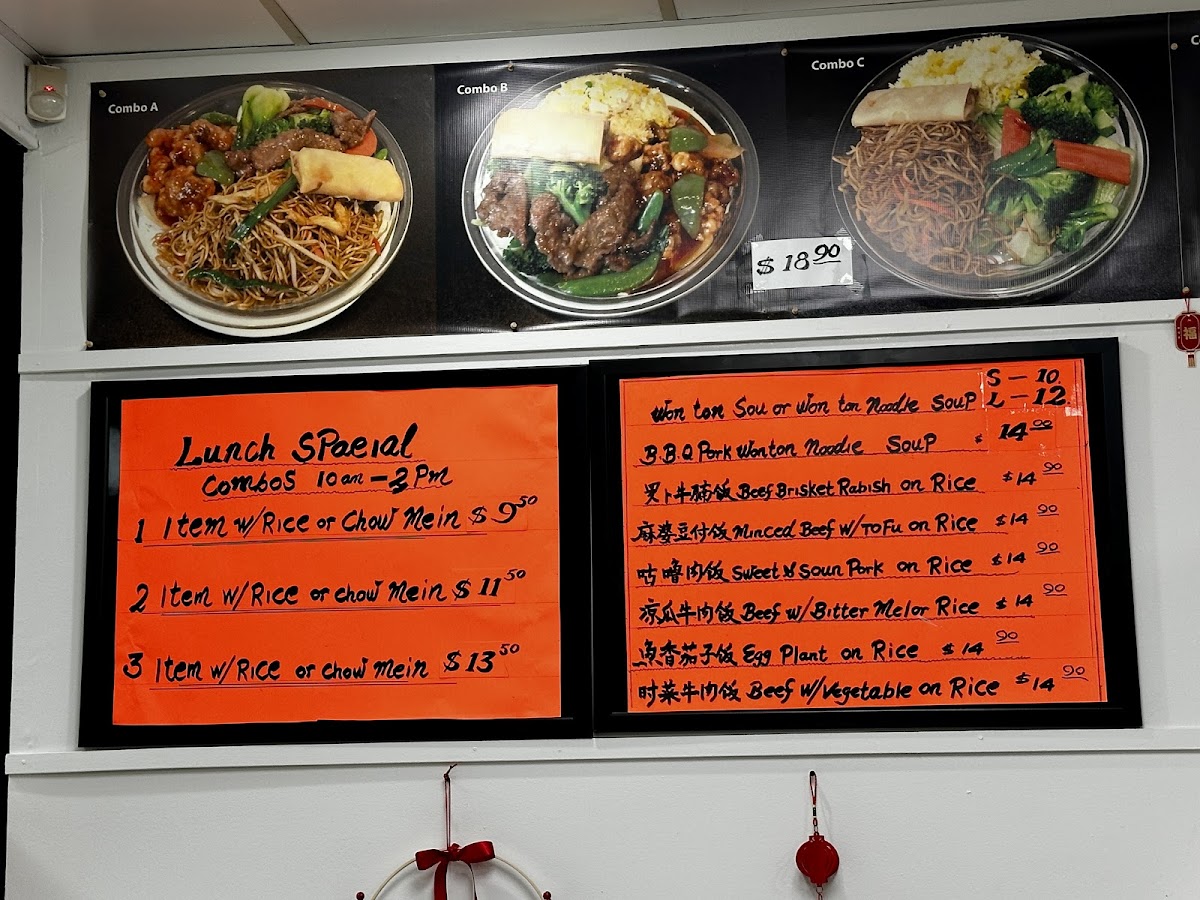 Combo A
Combo B
Combo C
$ 18 90
Lunch SPaeial
Combos 10 am - 3 Pm
1 Item w/Rice or Chow Mein $ 9 50
2 Item w/Rice or chow Mein $ 11 50
3 Item w/Rice or chow mein $ 13 50
Won ton Sou or Won ton Noodle Soup S - 10.
L - 12.
B.B.Q Pork Wonton Noodle Soup $ 14 00
罗卜牛腩饭 Beef Brisket Rabish on Rice $14 90
麻婆豆付饭 Minced Beef w/ToFu on Rice $14 90
咕噜肉饭 Sweet & Soun Pork on Rice $14 90
凉瓜牛肉饭 Beef w/Bitter Melor Rice $14 90
魚香茄子饭 Egg Plant on Rice $14 90
时菜牛肉饭 Beef w/vegetable on Rice $14 90
福